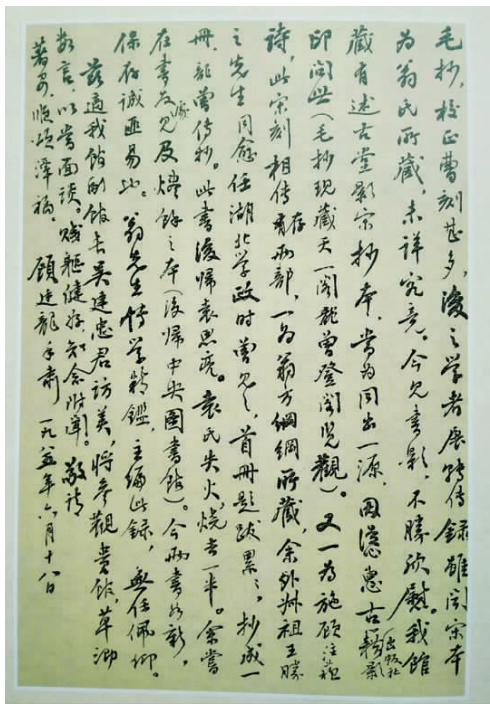 毛抄，校正曹刻甚多，後之学者展轉傳録，雖聞宋本
为翁氏所藏，未詳究竟。今見書影，不勝欣慰。我館
藏有述古堂影宋抄本，當为同出一源，因慫恿古籍出版社影
印問世（毛抄現藏天一閣，龍曾登閣覽觀）。又一为施顧注蘇
詩，此宋刻相傳存有兩部，一为翁方綱所藏，余外叔祖王勝
之先生同愈任湖北学政时曾見之，首冊題跋累々，抄成一
冊，龍曾傳抄。此書後歸袁思亮。袁氏失火，燒去一半。余嘗
在書友處見及燼餘之本（後歸中央圖書館）。今兩書如新，
保存誠匪易也。翁先生博学精鑑，主编此録，無任佩仰。
茲適我館副館長吴建忠君訪美，將参觀貴館，草泐
数言，以當面談。贱軀健好，知念附聞。敬請
著安，順颂潭福。顾廷龍手肃 一九八五年六月十八日